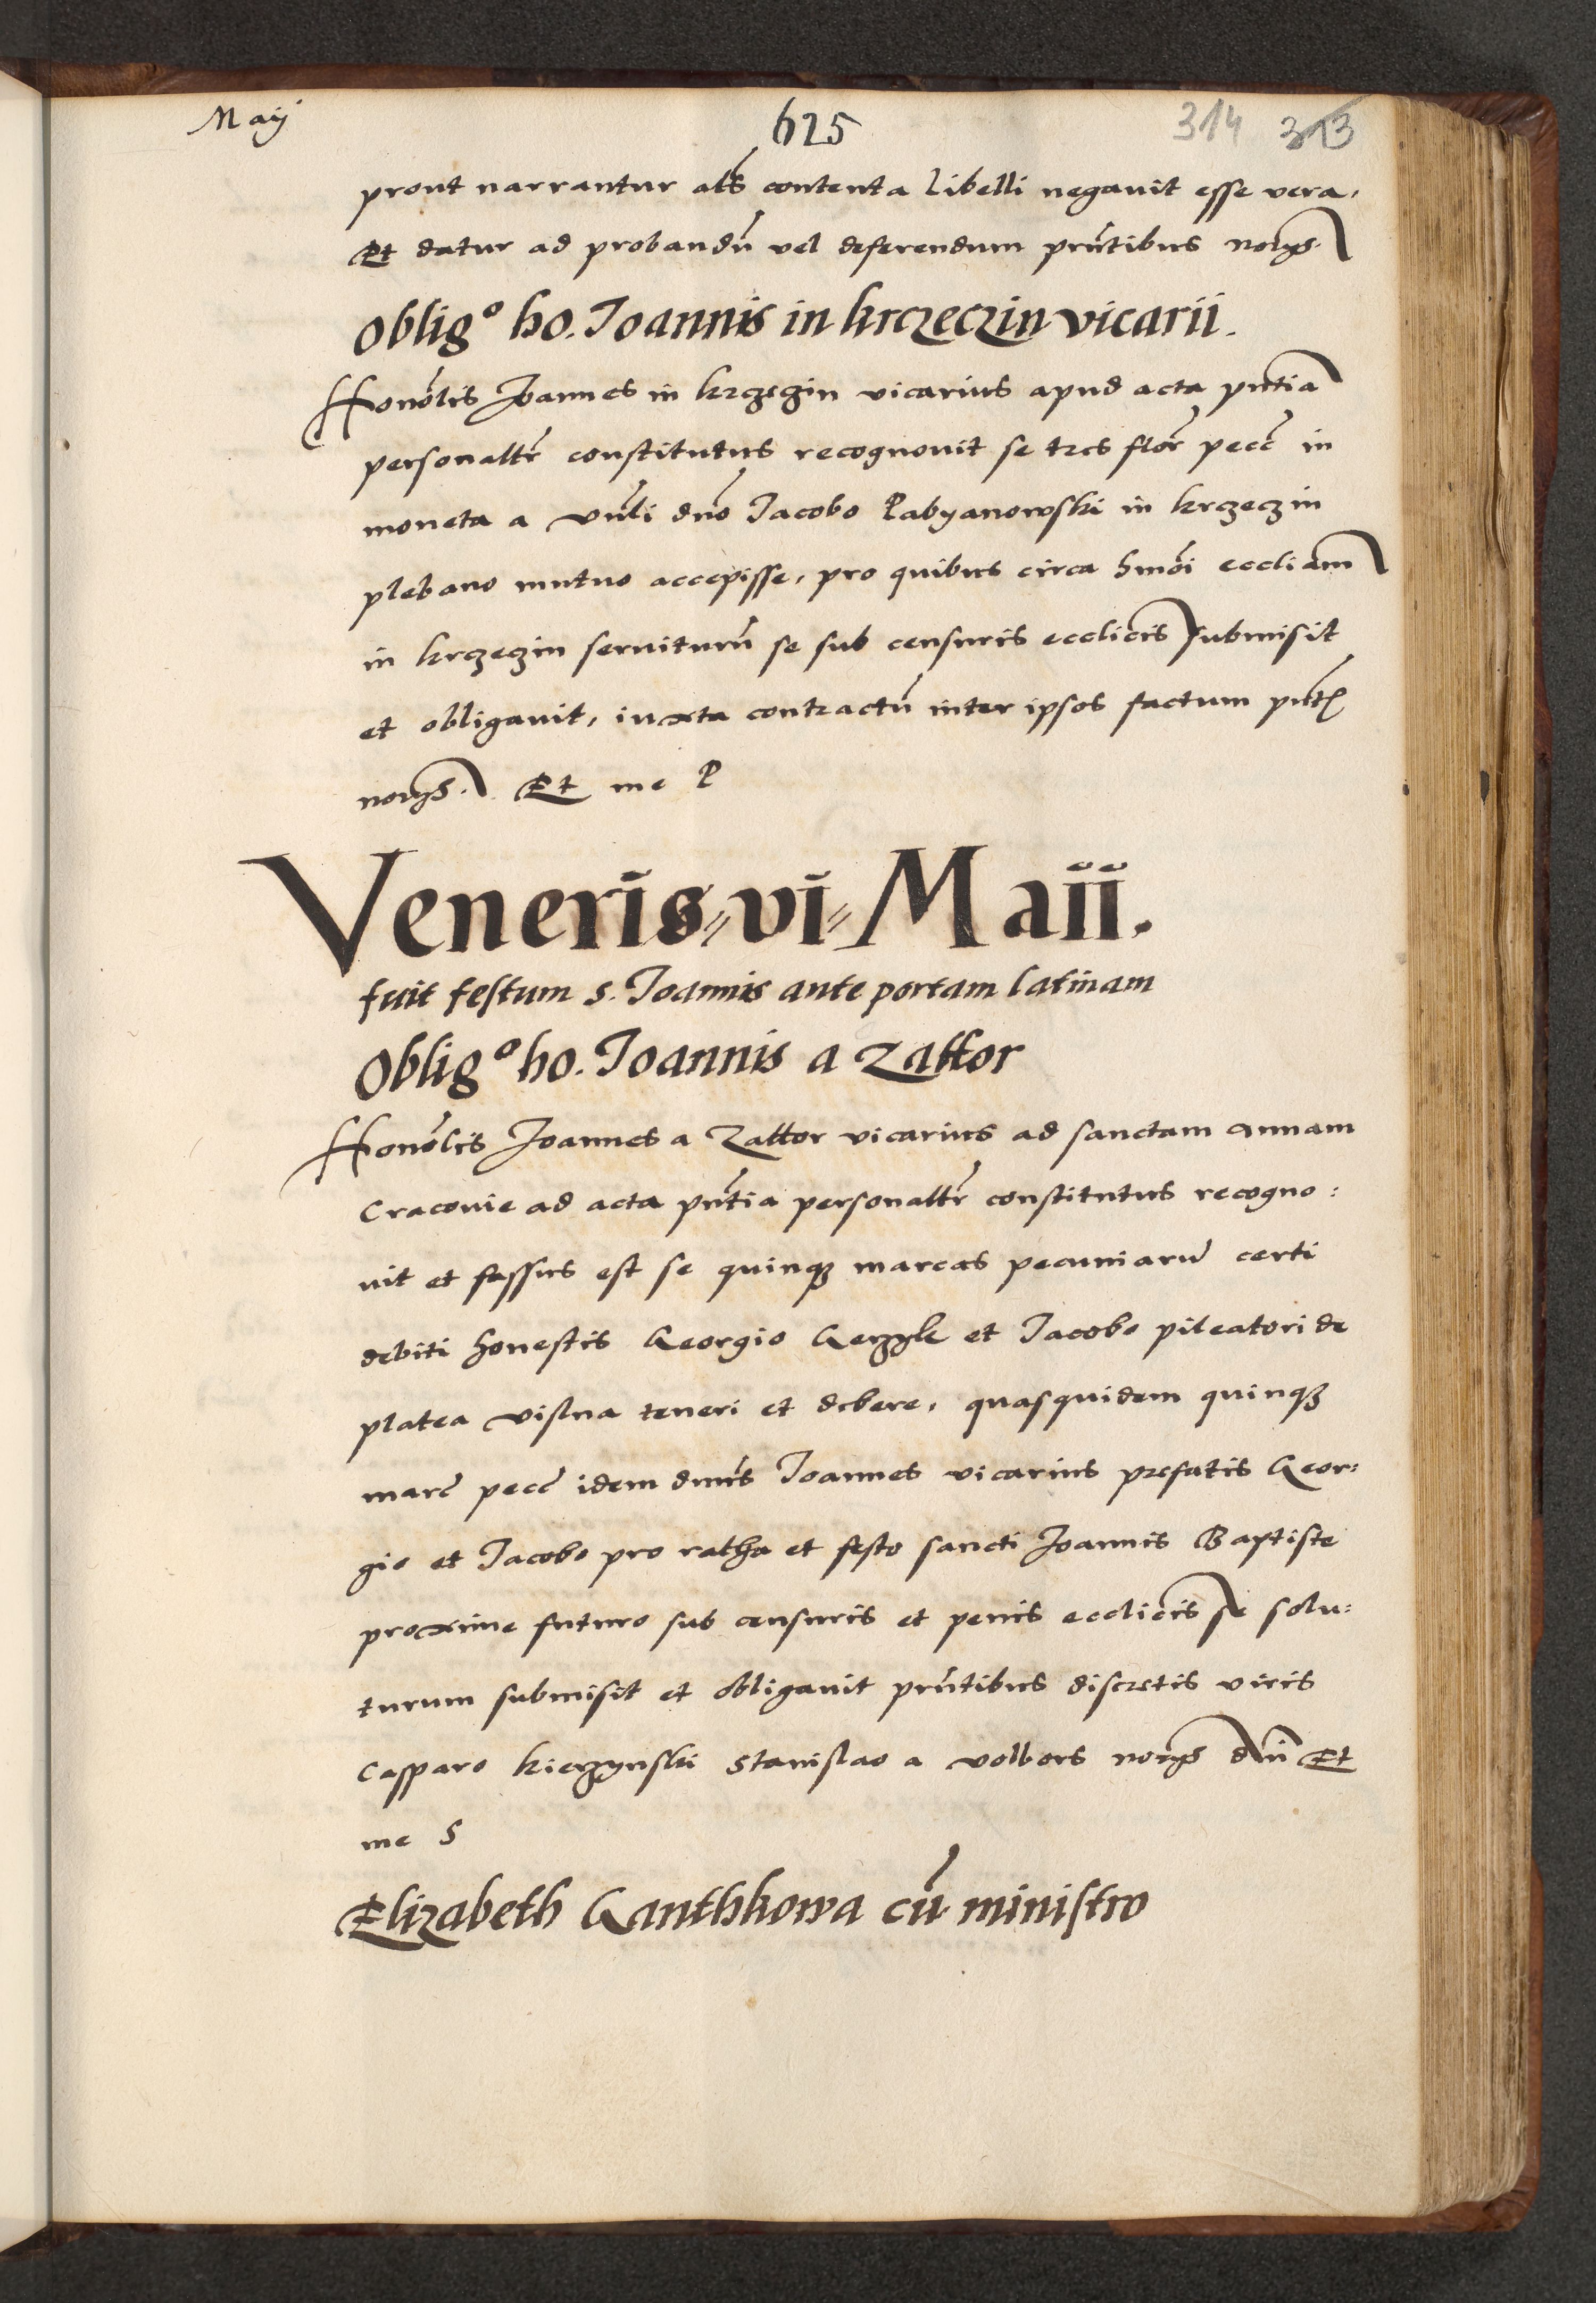 Maij
625
314 313
prout narrantur als contenta libelli negavit esse vera.
Et datur ad probandu vel deferendum pntibus norys.
Oblig° ho. Joannis in krczeczin vicarii.
Honolis Joannes in krczeczin vicarius apud acta pntia
personaltr constitutus recognovit se tres flor pecc in
moneta a vnli dno Jacobo Pabyanowski in krczeczin
plebano mutuo accepisse, pro quibus circa hmoi eccliam
in krczeczin serviturum se sub censuris ecclicis submisit
et obligavit, iuxta contractu inter ipsos factum pnt
norys. Et me P
Veneris vi Maii.
fuit festum s. Joannis ante portam latinam
Oblig° ho. Joannis a Zattor
Honolis Joannes a Zattor vicarius ad sanctam annam
Cracovie ad acta pntia personaltr constitutus recogno:
vit et fassus est se quinqz marcas pecuniaru certi
debiti honestis Georgio et Jacobo pileatori de
platea vislna teneri et debere, quasquidem quinqz
marc pecc idem dnus Joannes vicarius prefatis Geor:
gio et Jacobo pro ratha et festo sancti Joannis Baptiste
proxime futuro sub censuris et penis ecclicis se solu:
turum submisit et obligavit pntibus discretis viris
Casparo kierzynski Stanislao a volbors norys dni Et
me S
Elizabeth Ganthkowa cu ministro